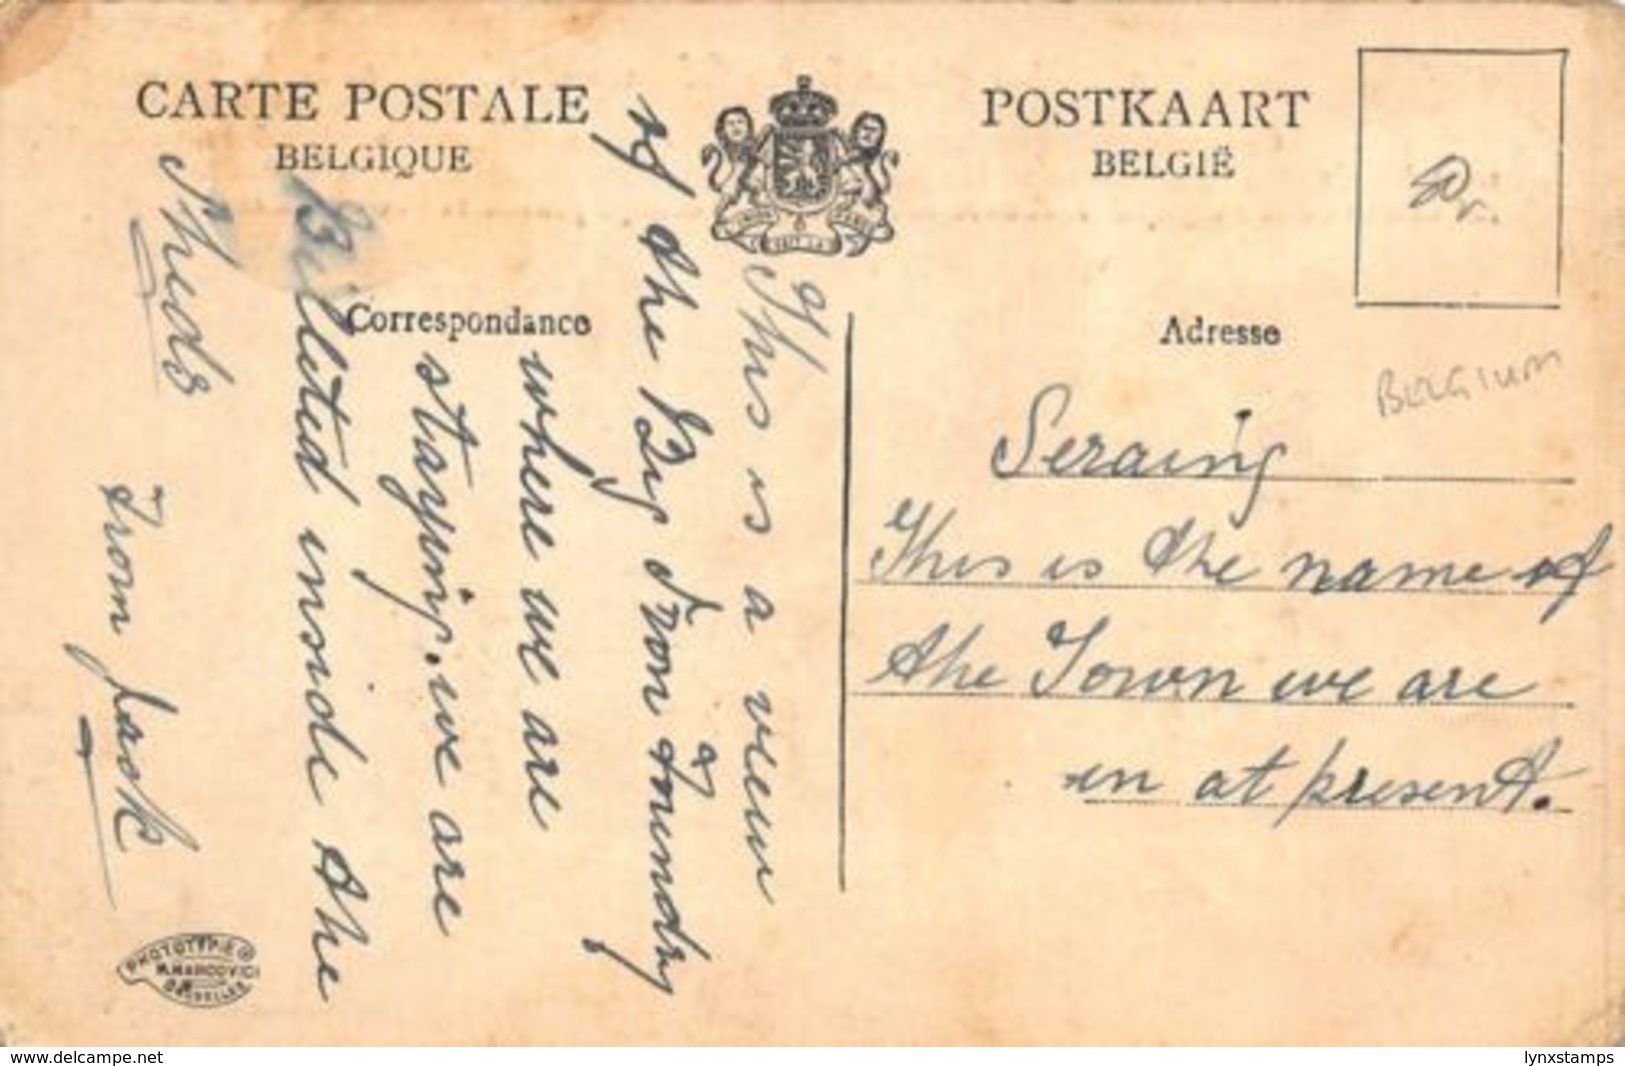 CARTE POSTALE
BELGIQUE
POSTKAART
BELGIË
Correspondance
Adresse
This is a view
of the Big Iron Foundry
where we are
staying. we are
Billeted inside the
Sheds
From Jack
BELGIUM
Seraing
This is the name of
the Town we are
in at present.
PHOTOTYPIE
M. MARCOVICI
BRUXELLES
www.delcampe.net
lynxstamps